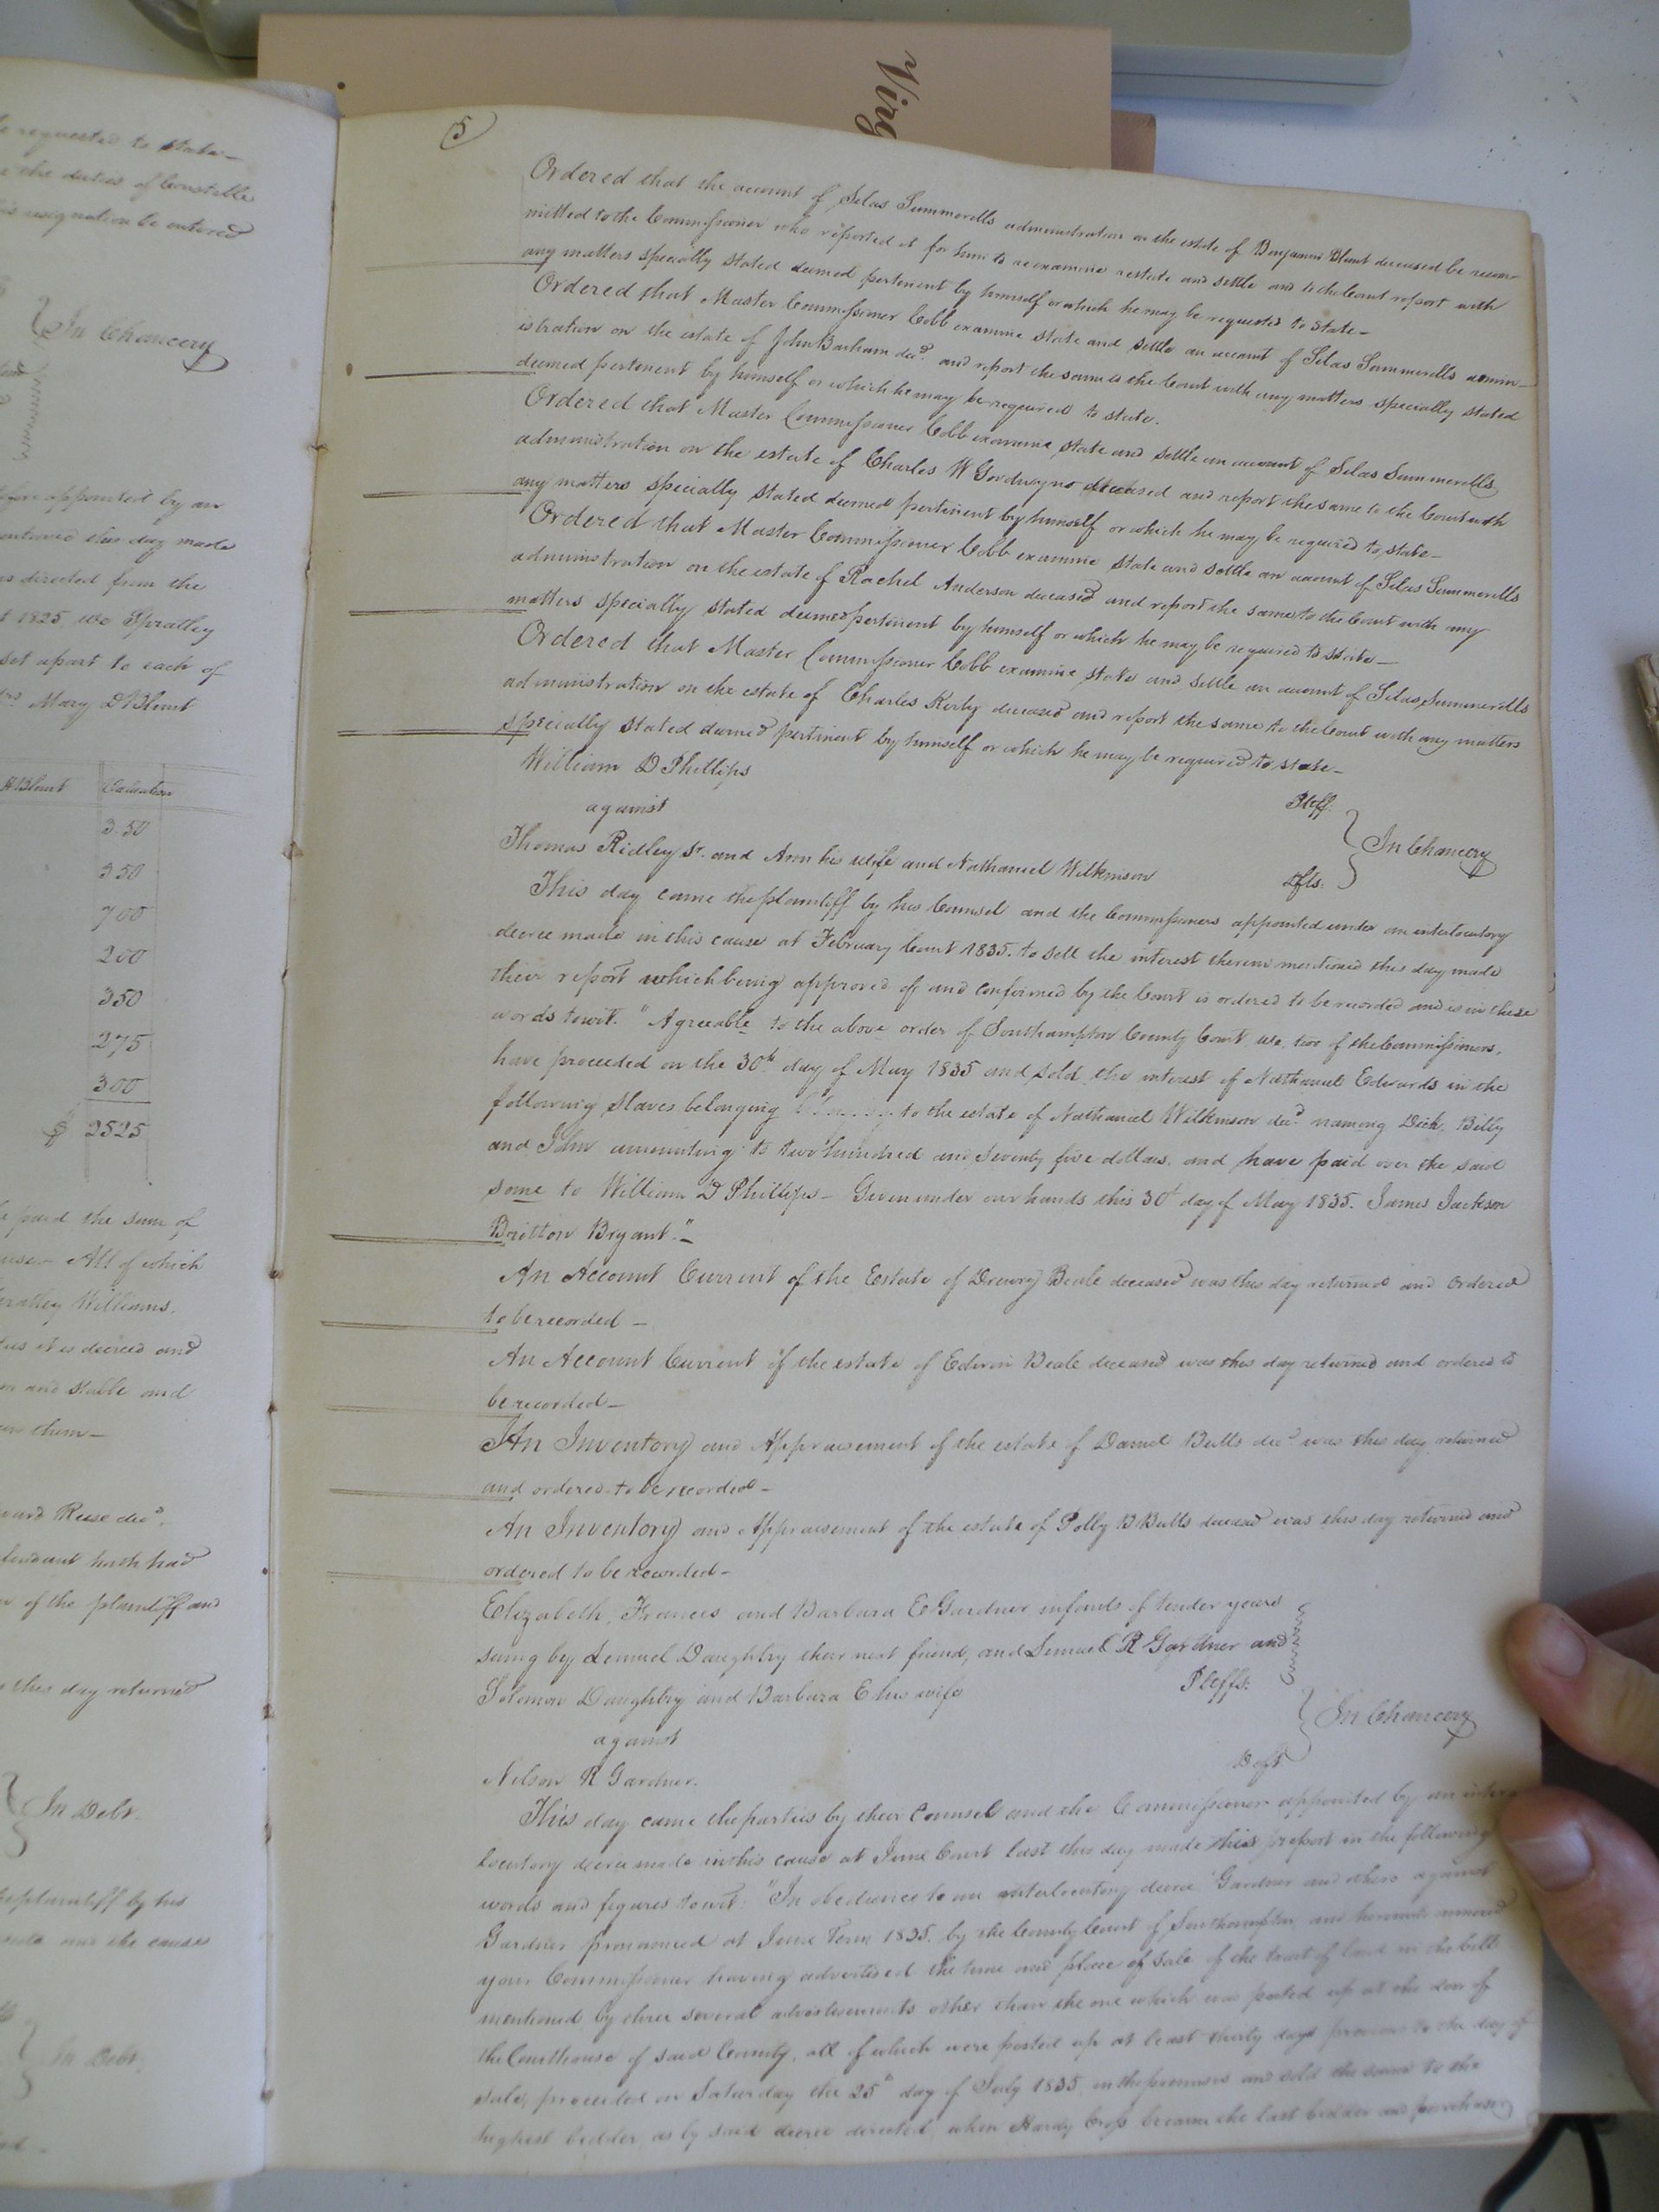 Virg
e requested to state—
e the duties of Constable
is resignation be entered
In Chancery
fore appointed by an
entered this day made
as directed from the
1825 we Spratley
set apart to each of
Mary D Blunt
Blunt Valuation
3.50
350
700
200
350
275
300
$ 2525
paid the sum of
All of which
Williams,
it is decreed and
and stable and
them—
ward Reese decd.
fendant hath had
of the plaintiff and
this day returned
In Debt.
plaintiff by his
the causes
In Debt.
5
Ordered that the account of Silas Summerells administration on the estate of Benjamin Blunt deceased be recom-
mitted to the Commissioner who reported it for him to reexamine restate and settle and to the Court report with
any matters specially stated deemed pertinent by himself or which he may be requested to state—
Ordered that Master Commissioner Cobb examine state and settle an account of Silas Summerells admin-
istration on the estate of John Barham decd. and report the same to the Court with any matters specially stated
deemed pertinent by himself or which he may be required to state.
Ordered that Master Commissioner Cobb examine, state and settle an account of Silas Summerells
administration on the estate of Charles W deceased and report the same to the Court with
any matters specially stated deemed pertinent by himself or which he may be required to state—
Ordered that Master Commissioner Cobb examine state and settle an account of Silas Summerells
administration on the estate of Rachel Anderson deceased and report the same to the Court with any
matters specially stated deemed pertinent by himself or which he may be required to state—
Ordered that Master Commissioner Cobb examine, state and settle an account of Silas Summerells
administration on the estate of Charles Kerby deceased and report the same to the Court with any matters
specially stated deemed pertinent by himself or which he may be required to state—
William D Phillips Pleff.
against In Chancery
Thomas Ridley Sr. and Ann his wife and Nathaniel Wilkinson Dfts.
This day came the plaintiff by his Counsel and the Commissioners appointed under an interlocutory
decree made in this cause at February Court 1835. to sell the interest therein mentioned this day made
their report which being approved of and confirmed by the Court is ordered to be recorded and is in these
words towit. "Agreeable to the above order of Southampton County Court, We, two of the Commissioners,
have proceeded on the 30th day of May 1835 and sold the interest of Nathaniel Edwards in the
following slaves belonging to the estate of Nathaniel Wilkinson decd. naming Dick, Billy
and John amounting to two hundred and seventy five dollars. and have paid over the said
some to William D Phillips— Given under our hands this 30th day of May 1835. James Jackson
Britton Bryant."—
An Account Current of the Estate of Drewry Beale deceased was this day returned and ordered
to be recorded—
An Account Current of the estate of Edwin Beale deceased was this day returned and ordered to
be recorded—
An Inventory and Appraisement of the estate of Daniel Butts decd. was this day returned
and ordered to be recorded—
An Inventory and Appraisement of the estate of Polly B Butts deceased was this day returned and
ordered to be recorded—
Elizabeth, Frances and Barbara E Gardner infants of tender years
suing by Lemuel Daughtry their next friend, and Lemuel R Gardner and
Solomon Daughtry and Barbara E his wife Pleffs.
against In Chancery
Nelson R Gardner. Deft
This day came the parties by their Counsel and the Commissioner appointed by an inter
locutory decree made in this cause at June Court last this day made his report in the following
words and figures towit: "In obedience to an interlocutory decree Gardner and others against
Gardner pronounced at June Term 1835. by the County Court of Southampton and hereunto annexed
your Commissioner having advertised the time and place of sale of the tract of land in the bill
mentioned by three several advertisements other than the one which was posted up at the door of
the Courthouse of said County, all of which were posted up at least thirty days previous to the day of
sale, proceeded on Saturday the 25th day of July 1835. on the premises and sold the same to the
highest bidder as by said decree directed, when Hardy Cross became the last bidder and purchaser